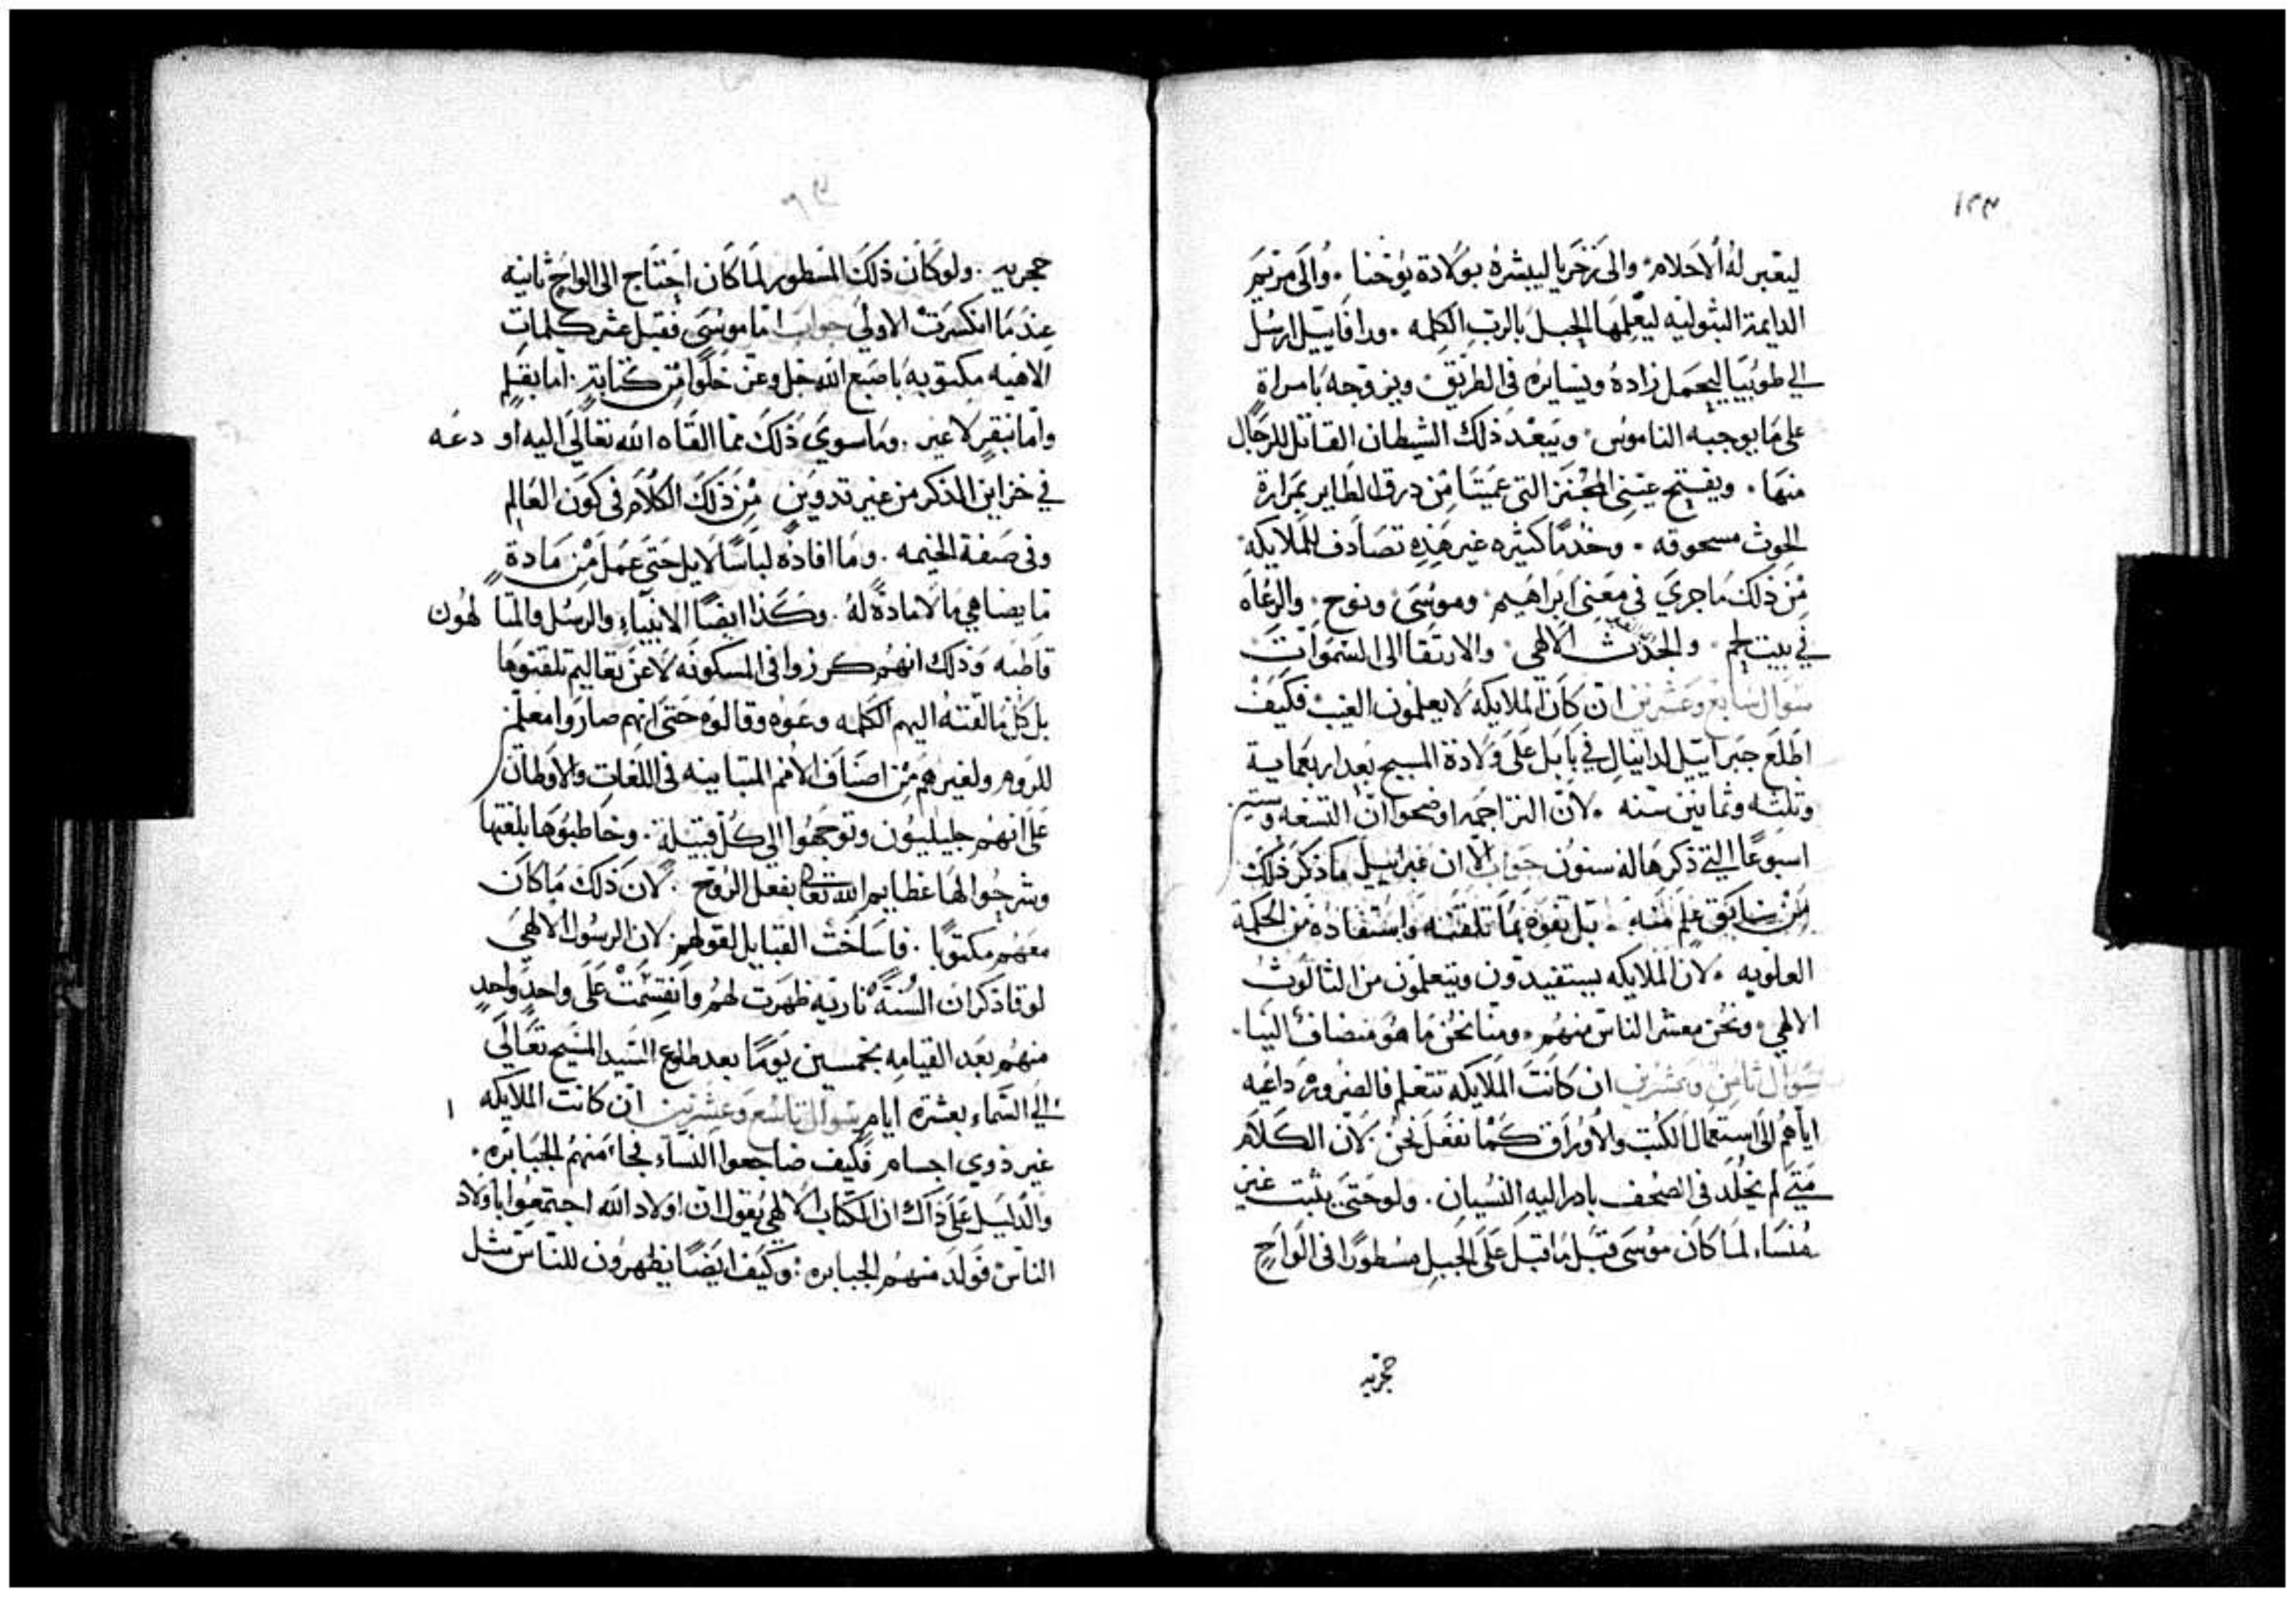 ١٣٣
ليعبر له الاحلام. والى زخريا ليبشره بولادة يوحنا. والى مريم
الدايمة البثوليه ليعلمها الحبل بالرب الكلمه. ورافاييل ارسل
الي طوبيا ليحمل زاده ويسايره في الطريق ويزوجه بامراة
على ما يوجبه الناموس. ويبعد ذلك الشيطان القاتل للرجال
منها. ويفتح عيني التي عميتا من درق الطاير بمرارة
الحوث مسحوقه. وخدمًا كثيره غير هذه تصادف للملايكة
من ذلك ما جري في معنى ابراهيم. وموسى ونوح. والرعاه
في بيت لحم. والجدث الالهي. والارتقا الى السموات
سوال سابع وعشرين ان كان الملايكه لا يعلمون الغيب فكيف
اطلع جبراييل لدانيال في بابل على ولادة المسيح بعد اربعماية
وثلثه وثمانين سنه. لان التراجمه اوضحوا ان التسعه وستين
اسبوعًا التي ذكرها له سنون جواب الا ان غبراييل ما ذكر ذلك
من سابق علم منه. بل تفوه بما تلقنه واستفاده من الحكمة
العلويه. لان الملايكه يستفيدون ويتعلمون من الثالوث
الالهي. ونحن معشر الناس منهم. ومنا نحن ما هو منضاف الينا.
سوال ثامن وعشرين ان كانت الملايكه تتعلم فالضروره داعيه
اياهم الى استعمال الكتب والاوراق كما نفعل نحن. لان الكلام
متي لم يخلد في الصحف بادر اليه النسيان. ولو حتى يثبت غير
منسا. لما كان موسى قبل ما قبل على الجبل مسطورًا في الواحٍ
حجريه
حجريه. ولو كان ذلك المسطور لما كان احتاج الى الواح ثانيه
عندما انكسرت الاولي جواب اما موسى فقبل عشر كلمات
الاهيه مكتوبه باصبع الله جل وعز خلوًا من كتابةٍ. اما بقلم
واما بنقرٍ لا غير. وما سوي ذلك مما القاه الله تعالى اليه اودعه
في خزاين الذكر من غير تدوين من ذلك الكلام في كون العالم
وفي صفة الخيمه. وما افاده لباسًا لا يبل حتى عمل من مادة
ما يضاهي ما لا مادة له. وكذا ايضًا الانبياء والرسل والمتالهون
قاطبه وذلك انهم كرزوا في المسكونه لا عن تعاليم تلقنوها
بل كل ما القته اليهم الكلمه وعوه وقالوه حتى انهم صاروا معلمين
للروم ولغيرهم من اصناف الامم المتباينه في اللغات والاوطان
على انهم جليليون وتوجهوا الي كل قبيلة. وخاطبوها بلغتها
وشرحوا لها عظايم الله تعالى بفعل الروح. لان ذلك ما كان
معهم مكتوبًا. فاساخت القبايل لقولهم لان الرسول الالهي
لوقا ذكر ان السنة ناريه ظهرت لهم وانقسمت على واحدٍ واحدٍ
منهم بعد القيامه بخمسين يومًا بعد طلوع السيد المسيح تعالى
الي السماء بعشرة ايام سوال تاسع وعشرين ان كانت الملايكه
غير ذوي اجسام فكيف ضاجعوا النساء فجا منهم الجبابره.
والدليل على ذاك ان الكتاب الالهي يقول ان اولاد الله اجتمعوا باولاد
الناس فولد منهم الجبابره: وكيف ايضًا يظهرون للناس مثل